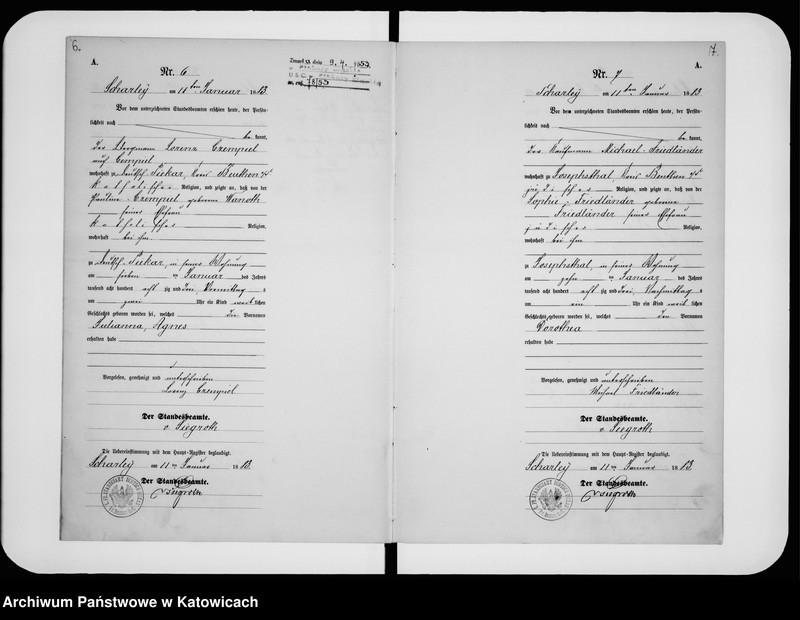 6.
A.
Nr. 6
Scharley am 11ten Januar 1883.
Vor dem unterzeichneten Standesbeamten erschien heute, der Persön-
lichkeit nach
be kannt,
der Bergmann Lorenz Czempiel
wohnhaft zu Deutsch-Piekar, Kreis Beuthen
katholischer Religion, und zeigte an, daß von der
Pauline Czempiel geborene Wanoth
seiner Ehefrau
katholischer Religion,
wohnhaft bei ihm
zu Deutsch-Piekar, in seiner Wohnung
am sieben ten Januar des Jahres
tausend acht hundert acht zig und drei Vormittag s
um zwei Uhr ein Kind weib lichen
Geschlechts geboren worden sei, welches die Vornamen
Julianna, Agnes
erhalten habe
Vorgelesen, genehmigt und unterschrieben
Lorenz Czempiel
Der Standesbeamte.
v. Siegroth
Die Uebereinstimmung mit dem Haupt-Register beglaubigt.
Scharley am 11ten Januar 1883.
Der Standesbeamte.
v. Siegroth
9. 4. 1953
U.S.C.
78/53
7.
A.
Nr. 7
Scharley am 11ten Januar 1883
Vor dem unterzeichneten Standesbeamten erschien heute, der Persön-
lichkeit nach
be kannt,
der Kaufmann Michael Friedländer
wohnhaft zu Josephsthal, Kreis Beuthen
jüdischer Religion, und zeigte an, daß von der
Sophie Friedländer geborene
Friedländer seiner Ehefrau
jüdischer Religion,
wohnhaft bei ihm
zu Josephsthal, in seiner Wohnung
am zehn ten Januar des Jahres
tausend acht hundert acht zig und drei Nachmittag s
um ein Uhr ein Kind weib lichen
Geschlechts geboren worden sei, welches den Vornamen
Dorothea
erhalten habe
Vorgelesen, genehmigt und unterschrieben
Michael Friedländer
Der Standesbeamte.
v. Siegroth
Die Uebereinstimmung mit dem Haupt-Register beglaubigt.
Scharley am 11ten Januar 1883.
Der Standesbeamte.
v. Siegroth
Archiwum Państwowe w Katowicach